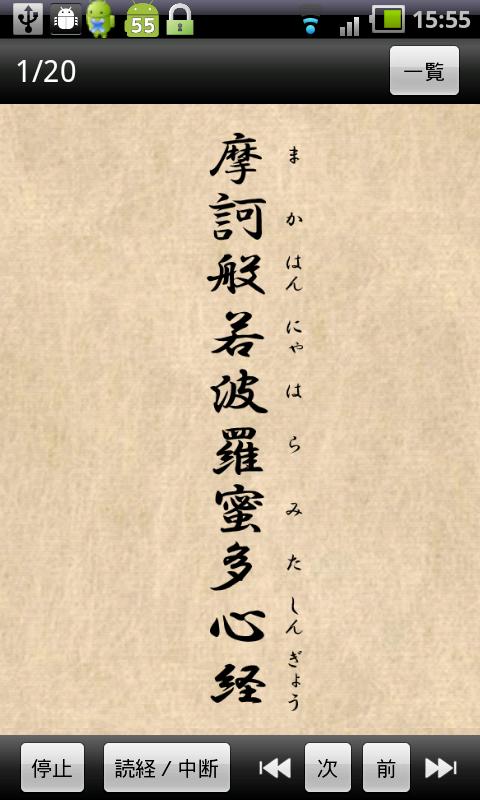 55
15:55
1/20
一覧
摩訶般若波羅蜜多心経
まかはんにゃはらみたしんぎょう
停止
読経 / 中断
次
前